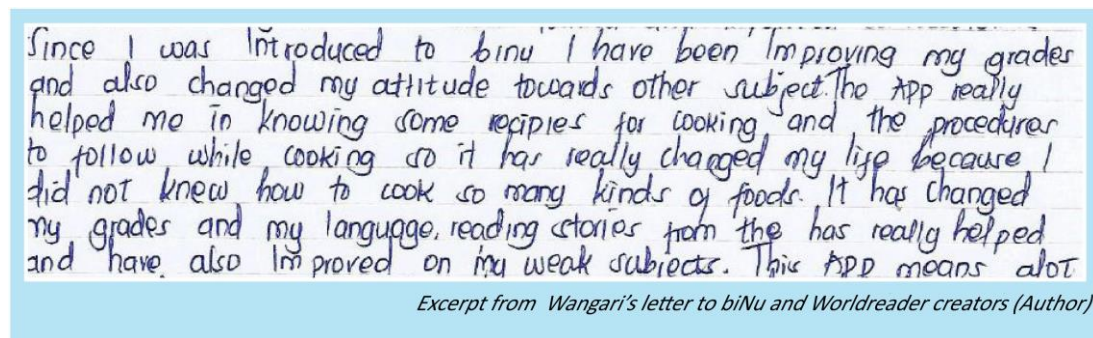 Since I was Introduced to binu I have been Improving my grades
and also changed my attitude towards other subject. The App really
helped me in knowing some recipies for cooking and the procedures
to follow while cooking so it has really changed my life because I
did not knew how to cook so many kinds of foods. It has changed
my grades and my language, reading stories from the has really helped
and have also Improved on my weak subjects. This App means alot
Excerpt from Wangari's letter to biNu and Worldreader creators (Author)